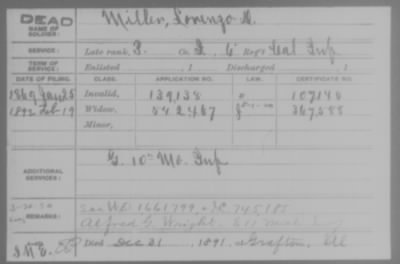 DEAD
NAME OF SOLDIER: Miller, Lorenzo M.
SERVICE: Late rank P. Co. I, 6" Reg't Cal Inf
TERM OF SERVICE: Enlisted , 1 Discharged , 1
DATE OF FILING. CLASS. APPLICATION NO. LAW. CERTIFICATE NO.
1869 Jany 25 Invalid, 139,138 107140
1892 Feb 19 Widow, 542,467 367,588
Minor,
ADDITIONAL SERVICES: G. 10" Mo. Inf
REMARKS: 1661799 745,185
Alfred G. Wright
Died Dec 21, 1891, Grafton, Ill